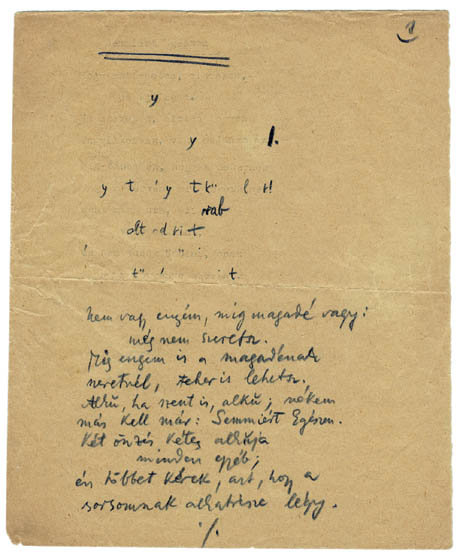 1
y
y 1.
rab
nem vagy enyém, míg magadé vagy:
még nem szeretsz.
Míg engem is a magadénak
szeretnél, teher is lehetsz.
Alku, ha szent is, alku; nékem
más kell már: Semmiért Egészen.
Két önzés kétes alkuja
minden egyéb;
én többet kérek, azt, hogy a
sorsomnak alkatrésze légy.
./.